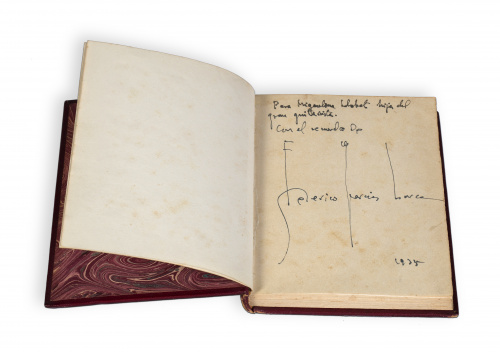 Para Miguelina Llobet hija del
gran guitarrista.
Con el recuerdo De
Federico García Lorca
1935